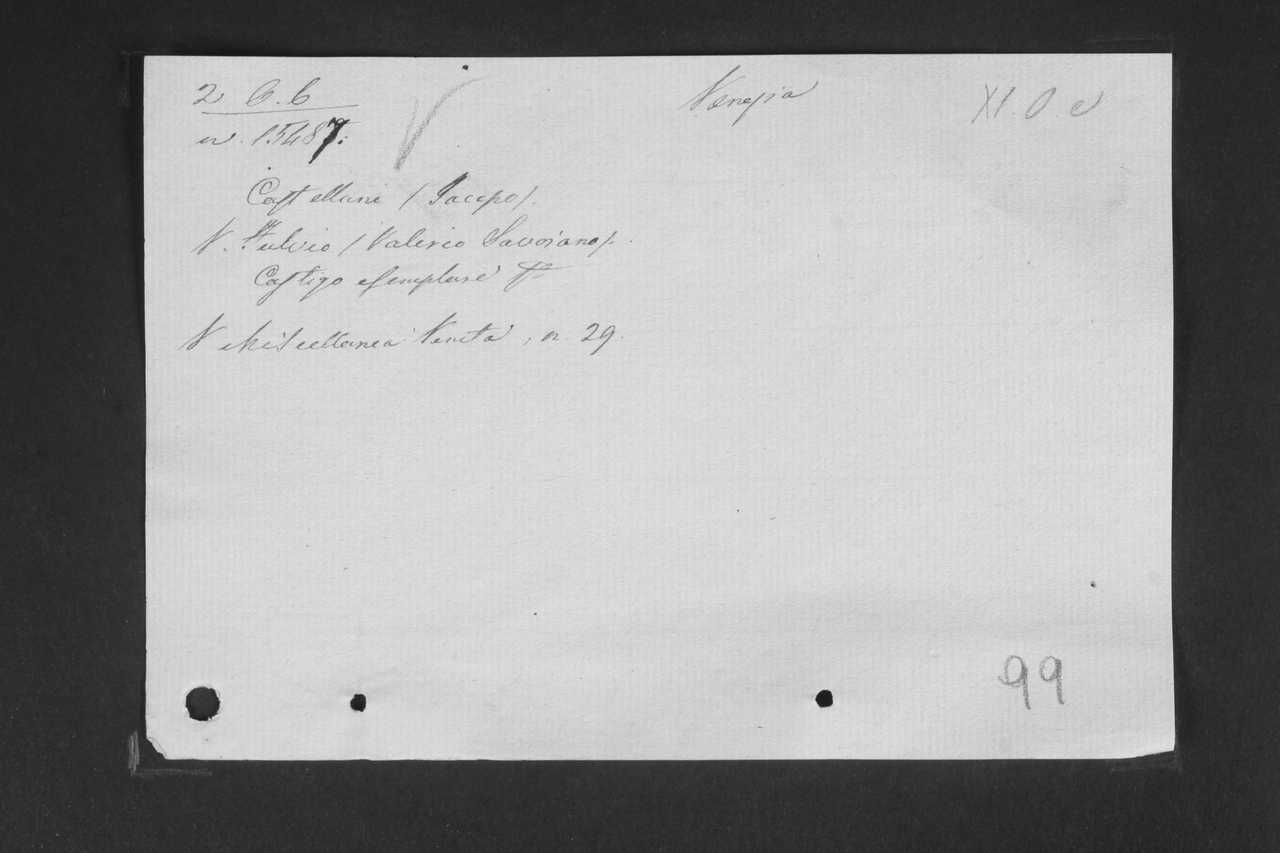 2 6.6
n. 15487.
V
Venezia
XI. O. c
Castellani (Jacopo).
V. Fulvio (Valerio Savoiano).
Castigo esemplare
V Miscellanea Veneta, n. 29.
99